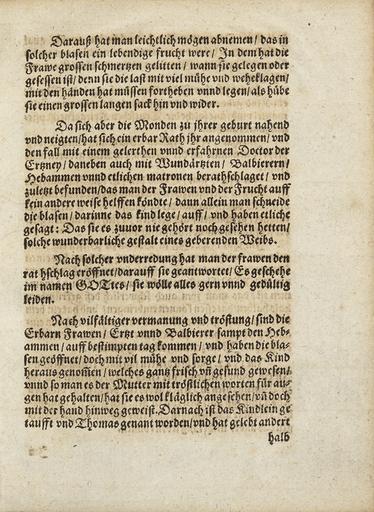 Darauß hat man leichtlich mögen abnemen / das in
solcher blasen ein lebendige frucht were / In dem hat die
Frawe grossen schmertzen gelitten / wann sie gelegen oder
gesessen ist / denn sie die last mit viel mühe vnd wehcklagen /
mit den händen hat müssen fortheben vnnd legen / als hübe
sie einen grossen langen sack hin vnd wider.
Da sich aber die Monden zu jhrer geburt nahend
vnd neigten / hat sich ein erbar Rath jhr angenommen / vnd
den fall mit einem gelerthen vnnd erfahrnen Doctor der
Ertzney / daneben auch mit Wundärtzten / Balbierern /
Hebammen vnnd etlichen matronen berathschlaget / vnd
zuletzt befunden / das man der Frawen vnd der Frucht auff
kein andere weise helffen köndte / dann allein man schneide
die blasen / darinne das kind lege / auff / vnd haben etliche
gesagt: Das sie es zuuor nie gehört noch gesehen hetten /
solche wunderbarliche gestalt eines geberenden Weibs.
Nach solcher vnderredung hat man der frawen den
rathschlag eröffnet / darauff sie geantwortet / Es geschehe
im namen GOTtes / sie wölle alles gern vnnd gedültig
leiden.
Nach vilfältiger vermanung vnd tröstung / sind die
Erbarn Frawen / Ertzt vnnd Balbierer sampt den Heb-
ammen / auff bestimpten tag kommen / vnd haben die bla-
sen geöffnet / doch mit vil mühe vnd sorge / vnd das Kind
heraus genom̄en / welches gantz frisch vn̄ gesund gewesen /
vnnd so man es der Mutter mit tröstlichen worten für au-
gen hat gehalten / hat sie es wol kläglich angesehen / vn̄ doch
mit der hand hinweg geweist. Darnach ist das Kindlein ge
taufft vnd Thomas genant worden / vnd hat gelebt andert
halb